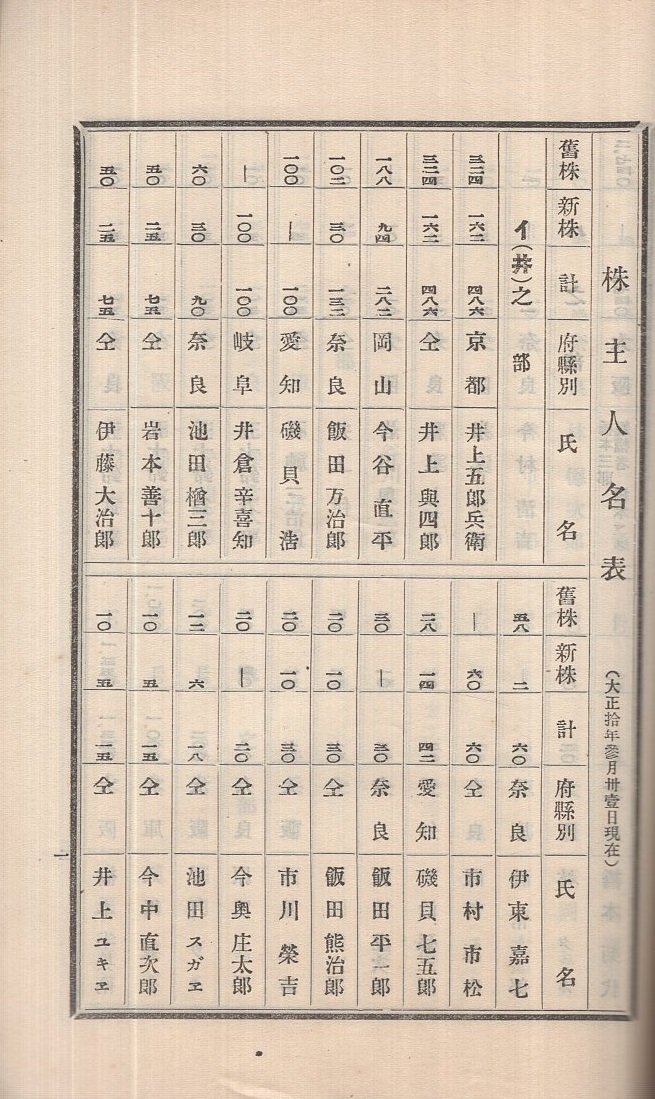 株主人名表 (大正拾年參月卅壹日現在)
舊株 新株 計 府縣別 氏名
イ(井)之部
三二四 一六二 四八六 京都 井上五郎兵衛
三二四 一六二 四八六 仝 井上與四郎
一八八 九四 二八二 岡山 今谷直平
一〇二 三〇 一三二 奈良 飯田万治郎
一〇〇 — 一〇〇 愛知 磯貝浩
— 一〇〇 一〇〇 岐阜 井倉辛喜知
六〇 三〇 九〇 奈良 池田楢三郎
五〇 二五 七五 仝 岩本善十郎
五〇 二五 七五 仝 伊藤大治郎
舊株 新株 計 府縣別 氏名
五八 二 六〇 奈良 伊東嘉七
— 六〇 六〇 仝 市村市松
二八 一四 四二 愛知 磯貝七五郎
三〇 — 三〇 奈良 飯田平一郎
二〇 一〇 三〇 仝 飯田熊治郎
二〇 一〇 三〇 仝 市川榮吉
二〇 — 二〇 仝 今奧庄太郎
一二 六 一八 仝 池田スガヱ
一〇 五 一五 仝 今中直次郎
一〇 五 一五 仝 井上ユキヱ
一